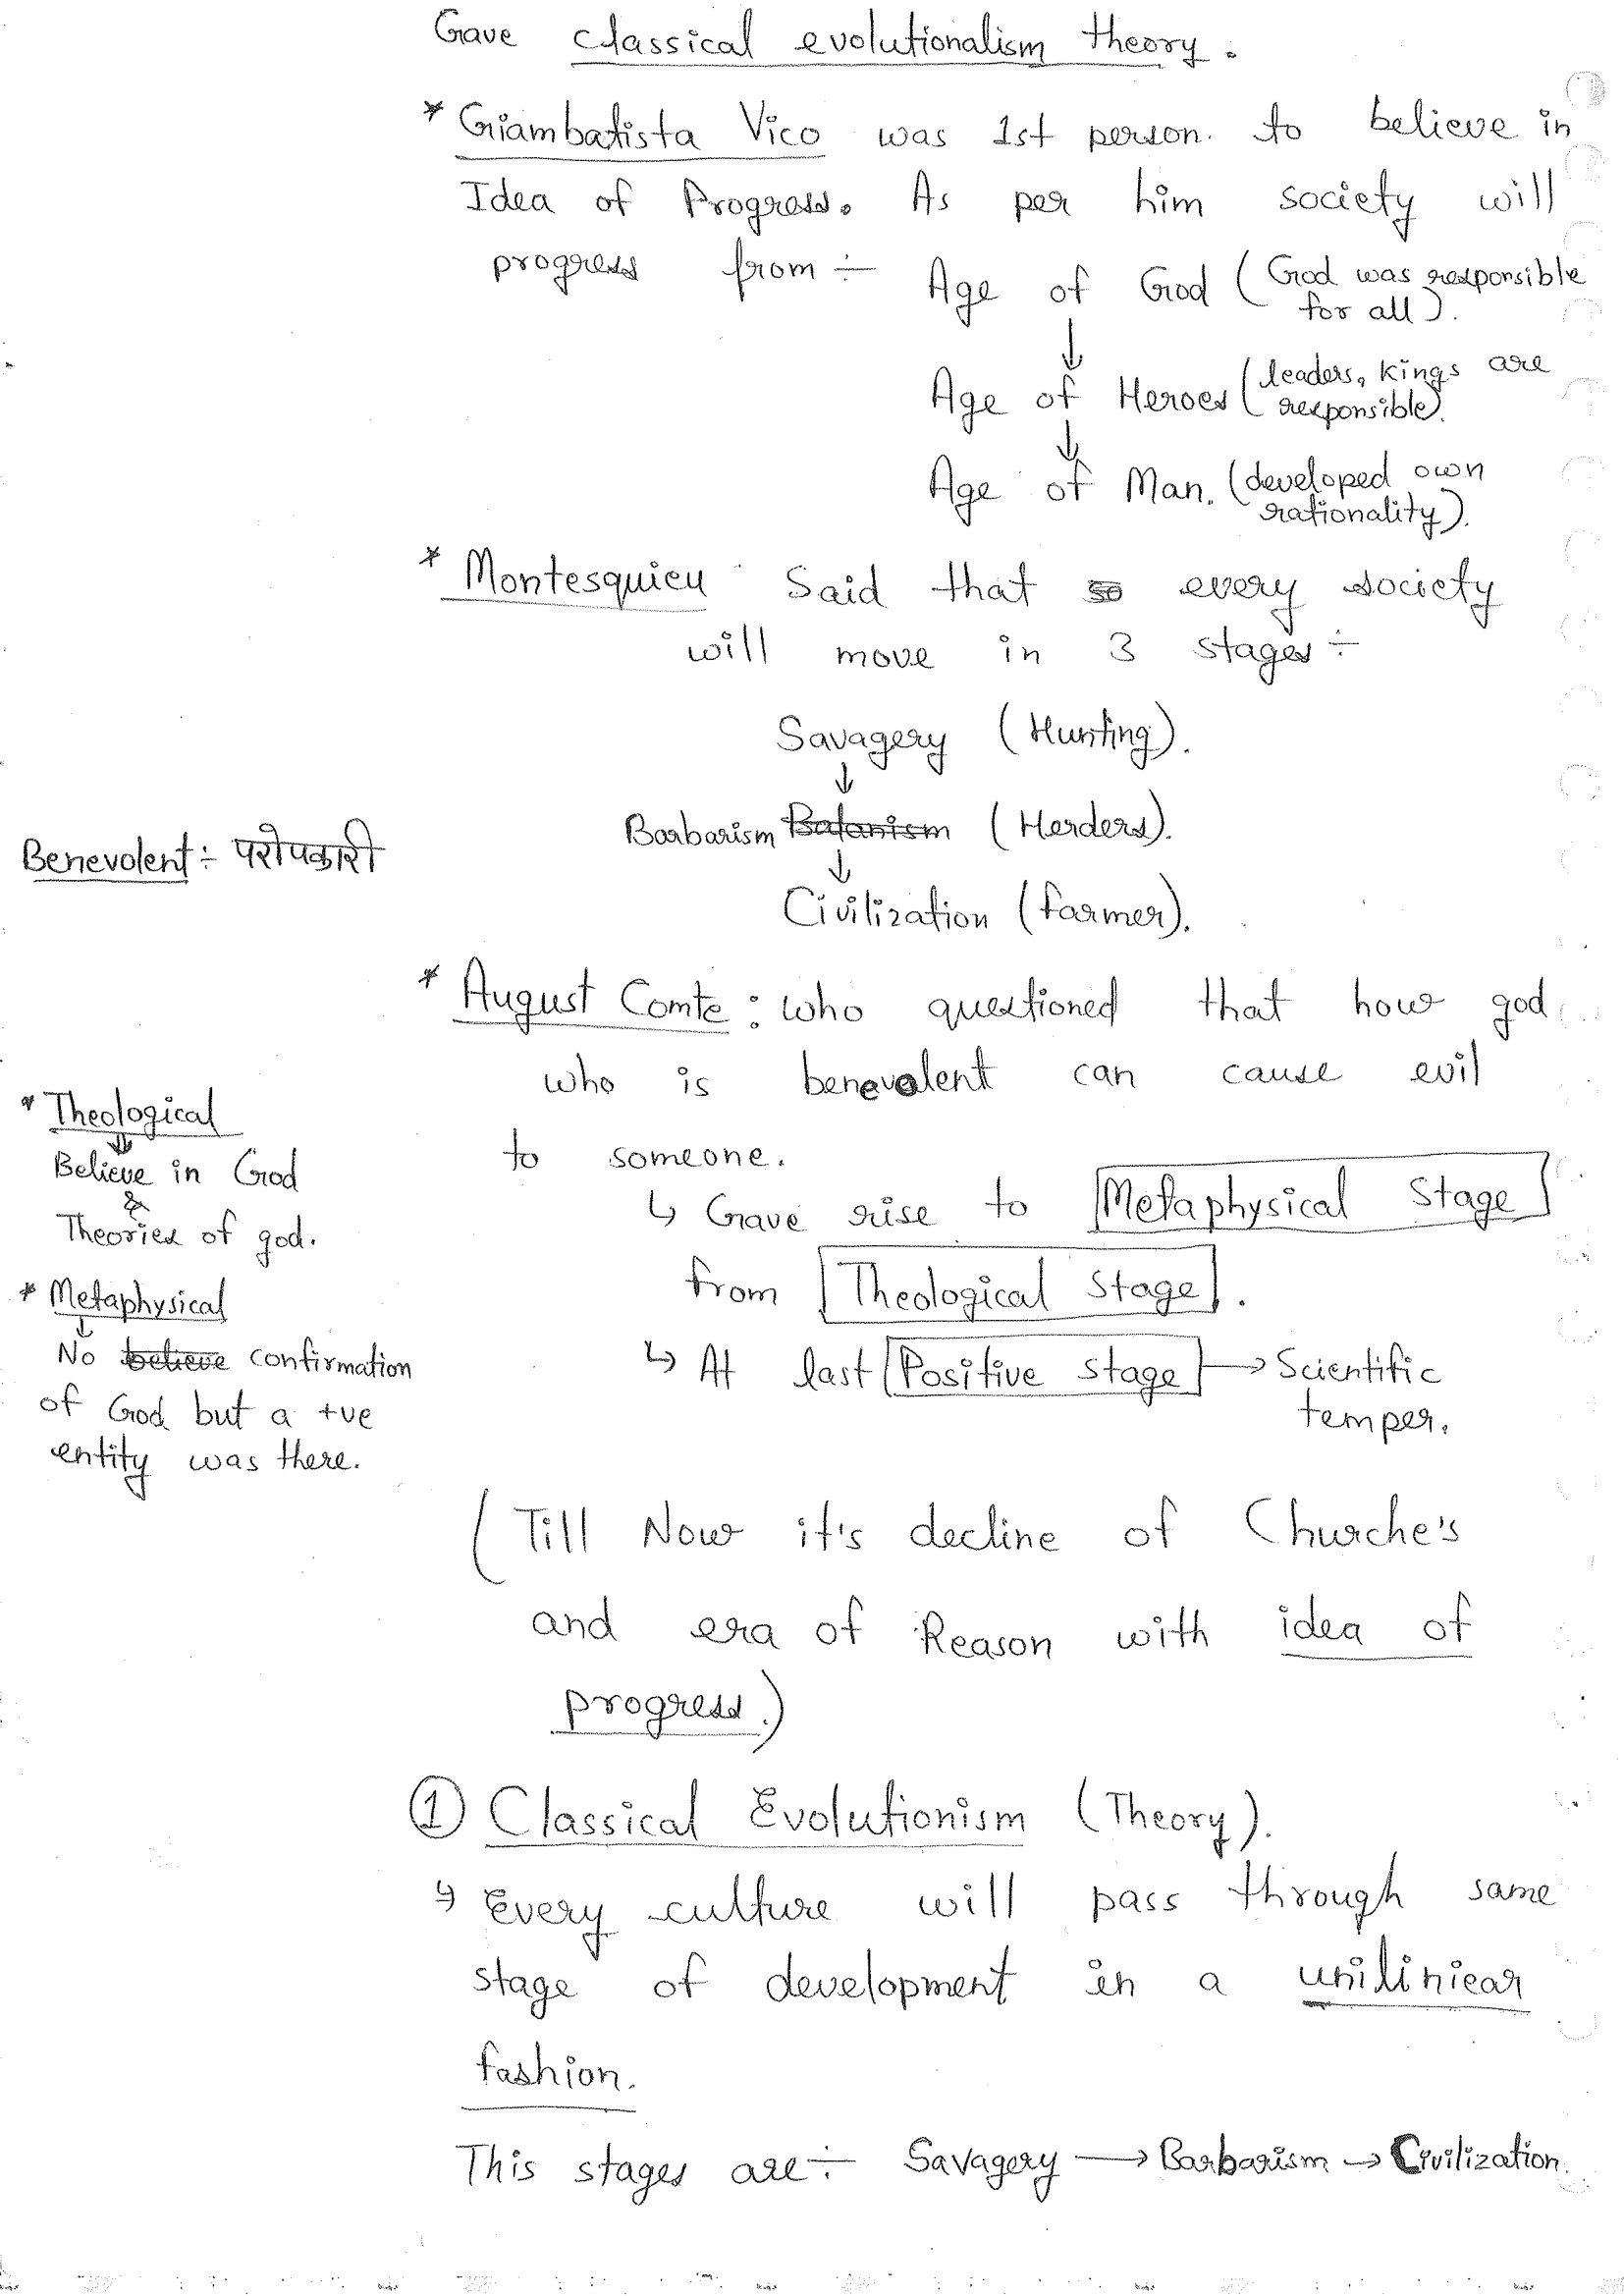 Gave classical evolutionalism theory.
* Giambatista Vico was 1st person. to believe in
Idea of Progress. As per him society will
progress from ÷ Age of God (God was responsible
for all).
↓
Age of Heroes (leaders, kings are
responsible).
↓
Age of Man. (developed own
rationality).
* Montesquieu Said that so every society
will move in 3 stages ÷
Savagery (Hunting).
↓
Barbarism Batanism (Herders).
↓
Civilization (farmer).
Benevolent ÷ परोपकारी
* August Comte : who questioned that how god
who is benevolent can cause evil
to someone.
↳ Gave rise to Metaphysical Stage
from Theological Stage.
↳ At last Positive Stage → Scientific
temper.
* Theological
⇓
Believe in God
&
Theories of god.
* Metaphysical
↓
No believe confirmation
of God but a +ve
entity was there.
(Till Now it's decline of Churche's
and era of Reason with idea of
progress.)
① Classical Evolutionism (Theory).
↳ Every culture will pass through same
stage of development in a uniliniear
fashion.
This stages are ÷ Savagery → Barbarism → Civilization.